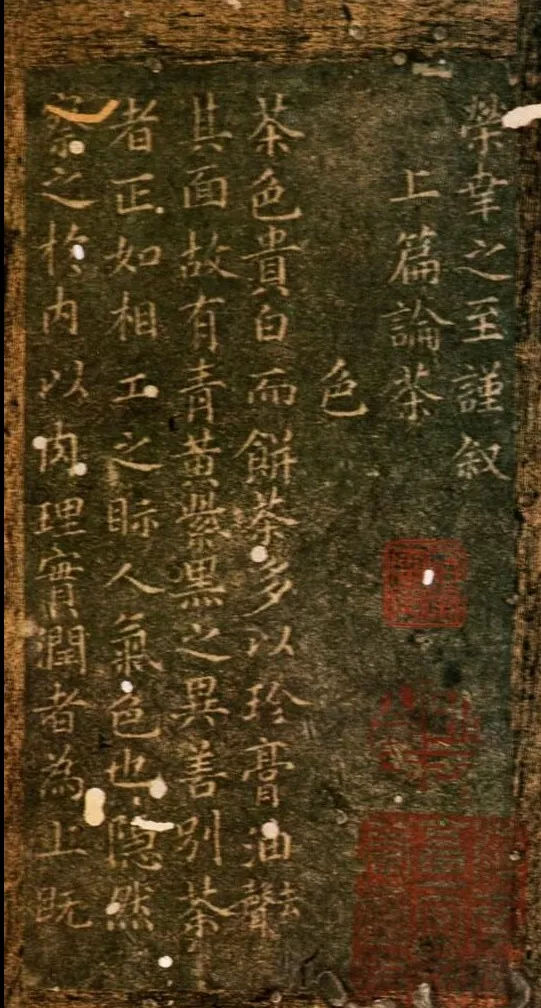 榮幸之至謹叙
上篇論茶
色
茶色貴白而餅茶多以珍膏油聲去
其面故有青黃紫黑之異善別茶
者正如相工之眎人氣色也隱然
察之於內以肉理實潤者為上既